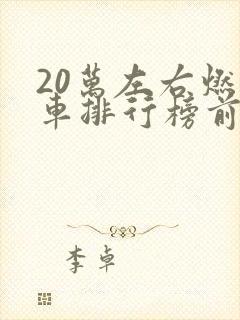 20萬左右燃
車排行榜前
李卓